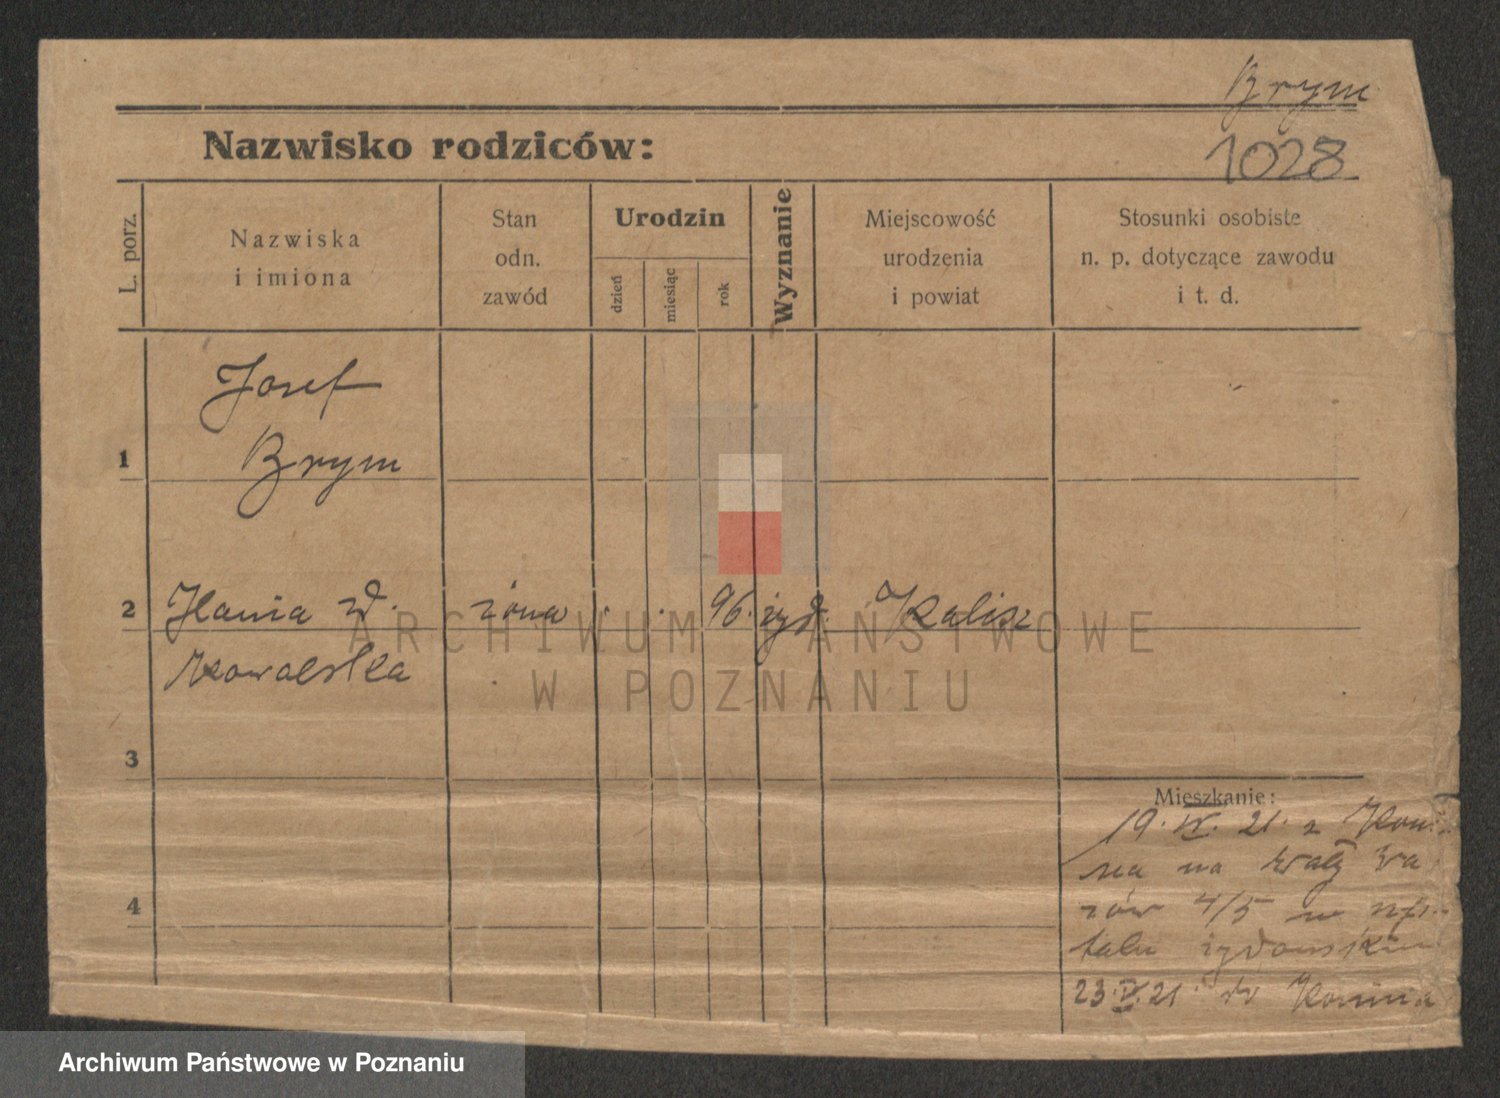 Brym
1028
Nazwisko rodziców:
L. porz.
Nazwiska
i imiona
Stan
odn.
zawód
Urodzin
dzień
miesiąc
rok
Wyznanie
Miejscowość
urodzenia
i powiat
Stosunki osobiste
n. p. dotyczące zawodu
i t. d.
1
Josef
Brym
2
Hania zd. żona . . 96. żyd. Kalisz
Kowalska
3
Mieszkanie:
19. IV. 21. z
na Wały
4/5 w
4
talu żydowskim
23. V. 21. do Konina
ARCHIWUM PAŃSTWOWE
W POZNANIU
Archiwum Państwowe w Poznaniu